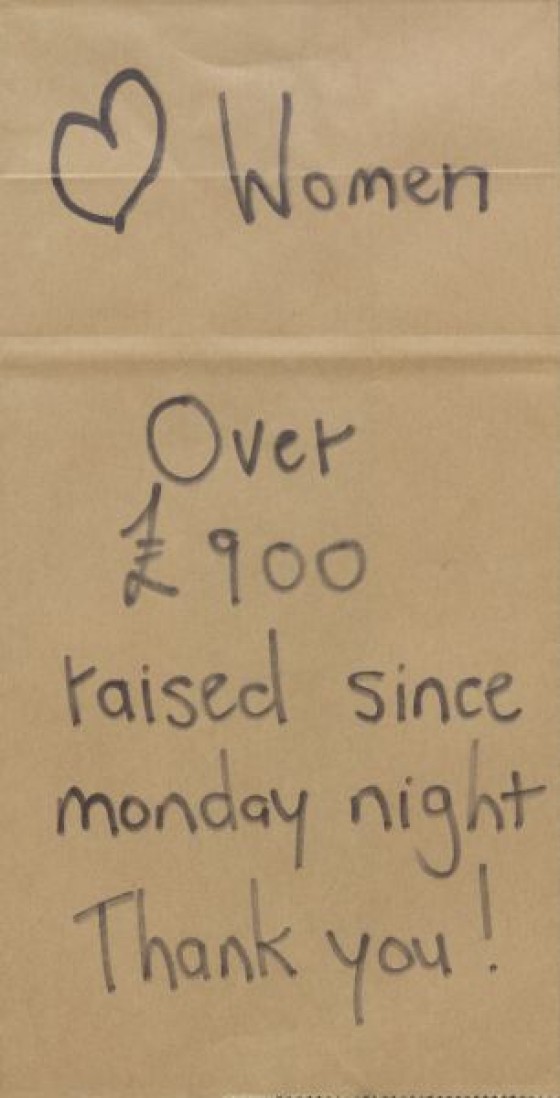 ♡ Women
Over
£900
raised since
monday night
Thank you!